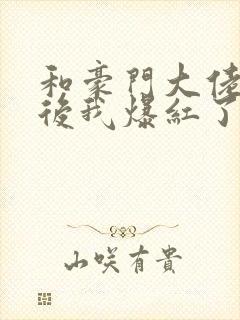 和豪門大佬
後我爆紅了
山咲有貴